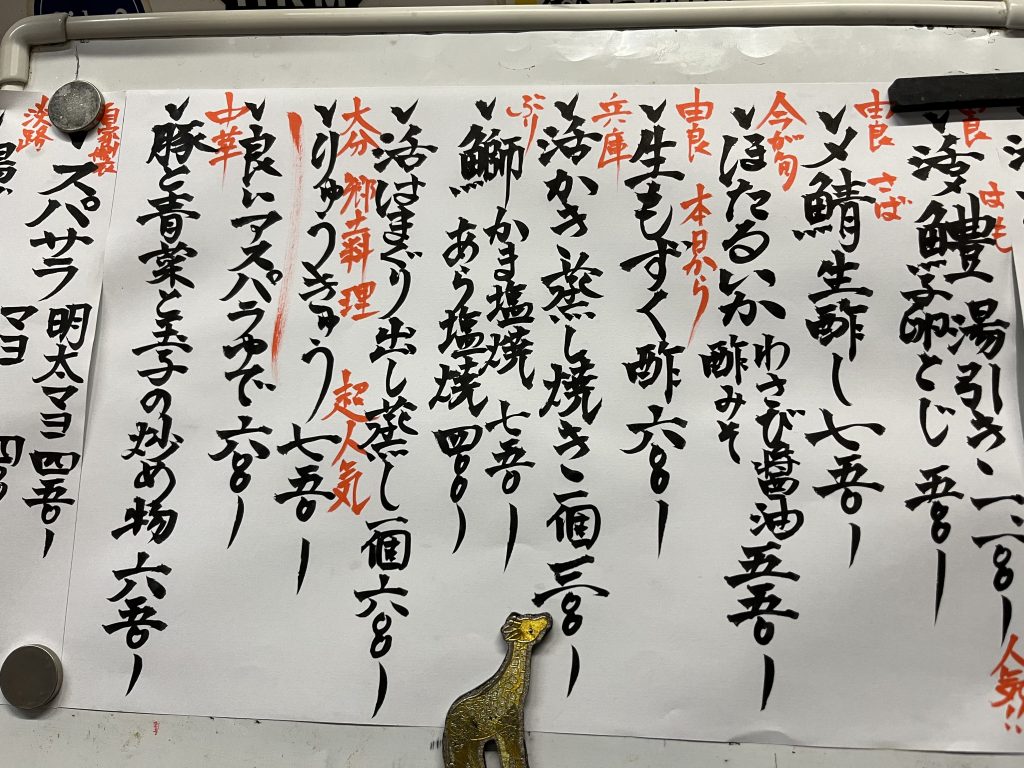 はも
活〆鱧湯引き 一、二〇〇ー
人気!!
鱧子卵とじ 五五〇ー
由良 さば
〆鯖生酢し 七五〇ー
今が旬
ほたるいか わさび醤油 酢みそ 五五〇ー
由良 本日から
生もずく酢 六〇〇ー
兵庫
活かき 蒸し 焼き 一個 三五〇ー
ぶり
鰤 かま塩焼 七五〇ー
あら塩焼 四〇〇ー
活はまぐり 出し蒸し 一個 六〇〇ー
大分 郷土料理 超人気
りゅうきゅう 七五〇ー
良いアスパラゆで 六〇〇ー
中華
豚と青菜と玉子の炒め物 六五〇ー
自家製
スパサラ 明太マヨ 四五〇ー
マヨ 四〇〇
淡路